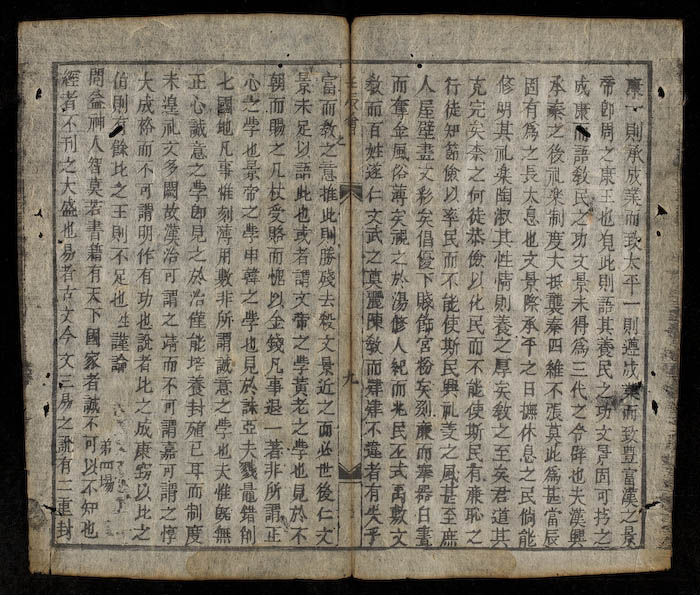 康一則承成業而致太平一則遵成業而致豐富漢之景
帝即周之康王也自此則語其養民之功文景固可埒之
成康而語敎民之功文景未得爲三代之令辟也夫漢興
承秦之後礼楽制度大抵龔秦四維不張莫此爲甚當辰
固有爲之長太息也文景際承平之日撫休息之民倘能
修明其礼楽陶淑其性情則養之厚矣敎之至矣君道其
克完矣柰之何徒恭儉以化民而不能使斯民有廉恥之
行徒知節儉以率民而不能使斯民興礼之風甚至庶
人屋壁盡文彩矣倡優下賤飾宮粉矣刻廉而筆器白晝
而奪金風俗薄矣視之於湯修人紀而兆民丕式禹敷文
敎而百姓遂仁文武之莫麗陳敎而肄肄不違者有失乎
富而敎之意推此則勝殘去殺文景近之而必世後仁文
景未足以語此也或者謂文帝之學黃老之學也見於不
朝而賜之几杖受賂而愧以金錢凡事退一著非所謂正
心之學也景帝之學申韓之學也見於誅亞夫戮鼂錯削
七國地凡事惟刻薄用數非所謂誠意之學也夫惟旣無
正心誠意之學即見之於治僅能培養封殖已耳而制度
未遑礼文多闕故漢治可謂之靖而不可謂嘉可謂之惇
大成裕而不可謂明作有功也說者比之成康竊以比之
伯則有餘比之王則不足也謹論
第四場
問益神人智莫若書籍有天下國家者誠不可以不知也
經者不刊之大盛也易者古文今文二易之說有二重封
九